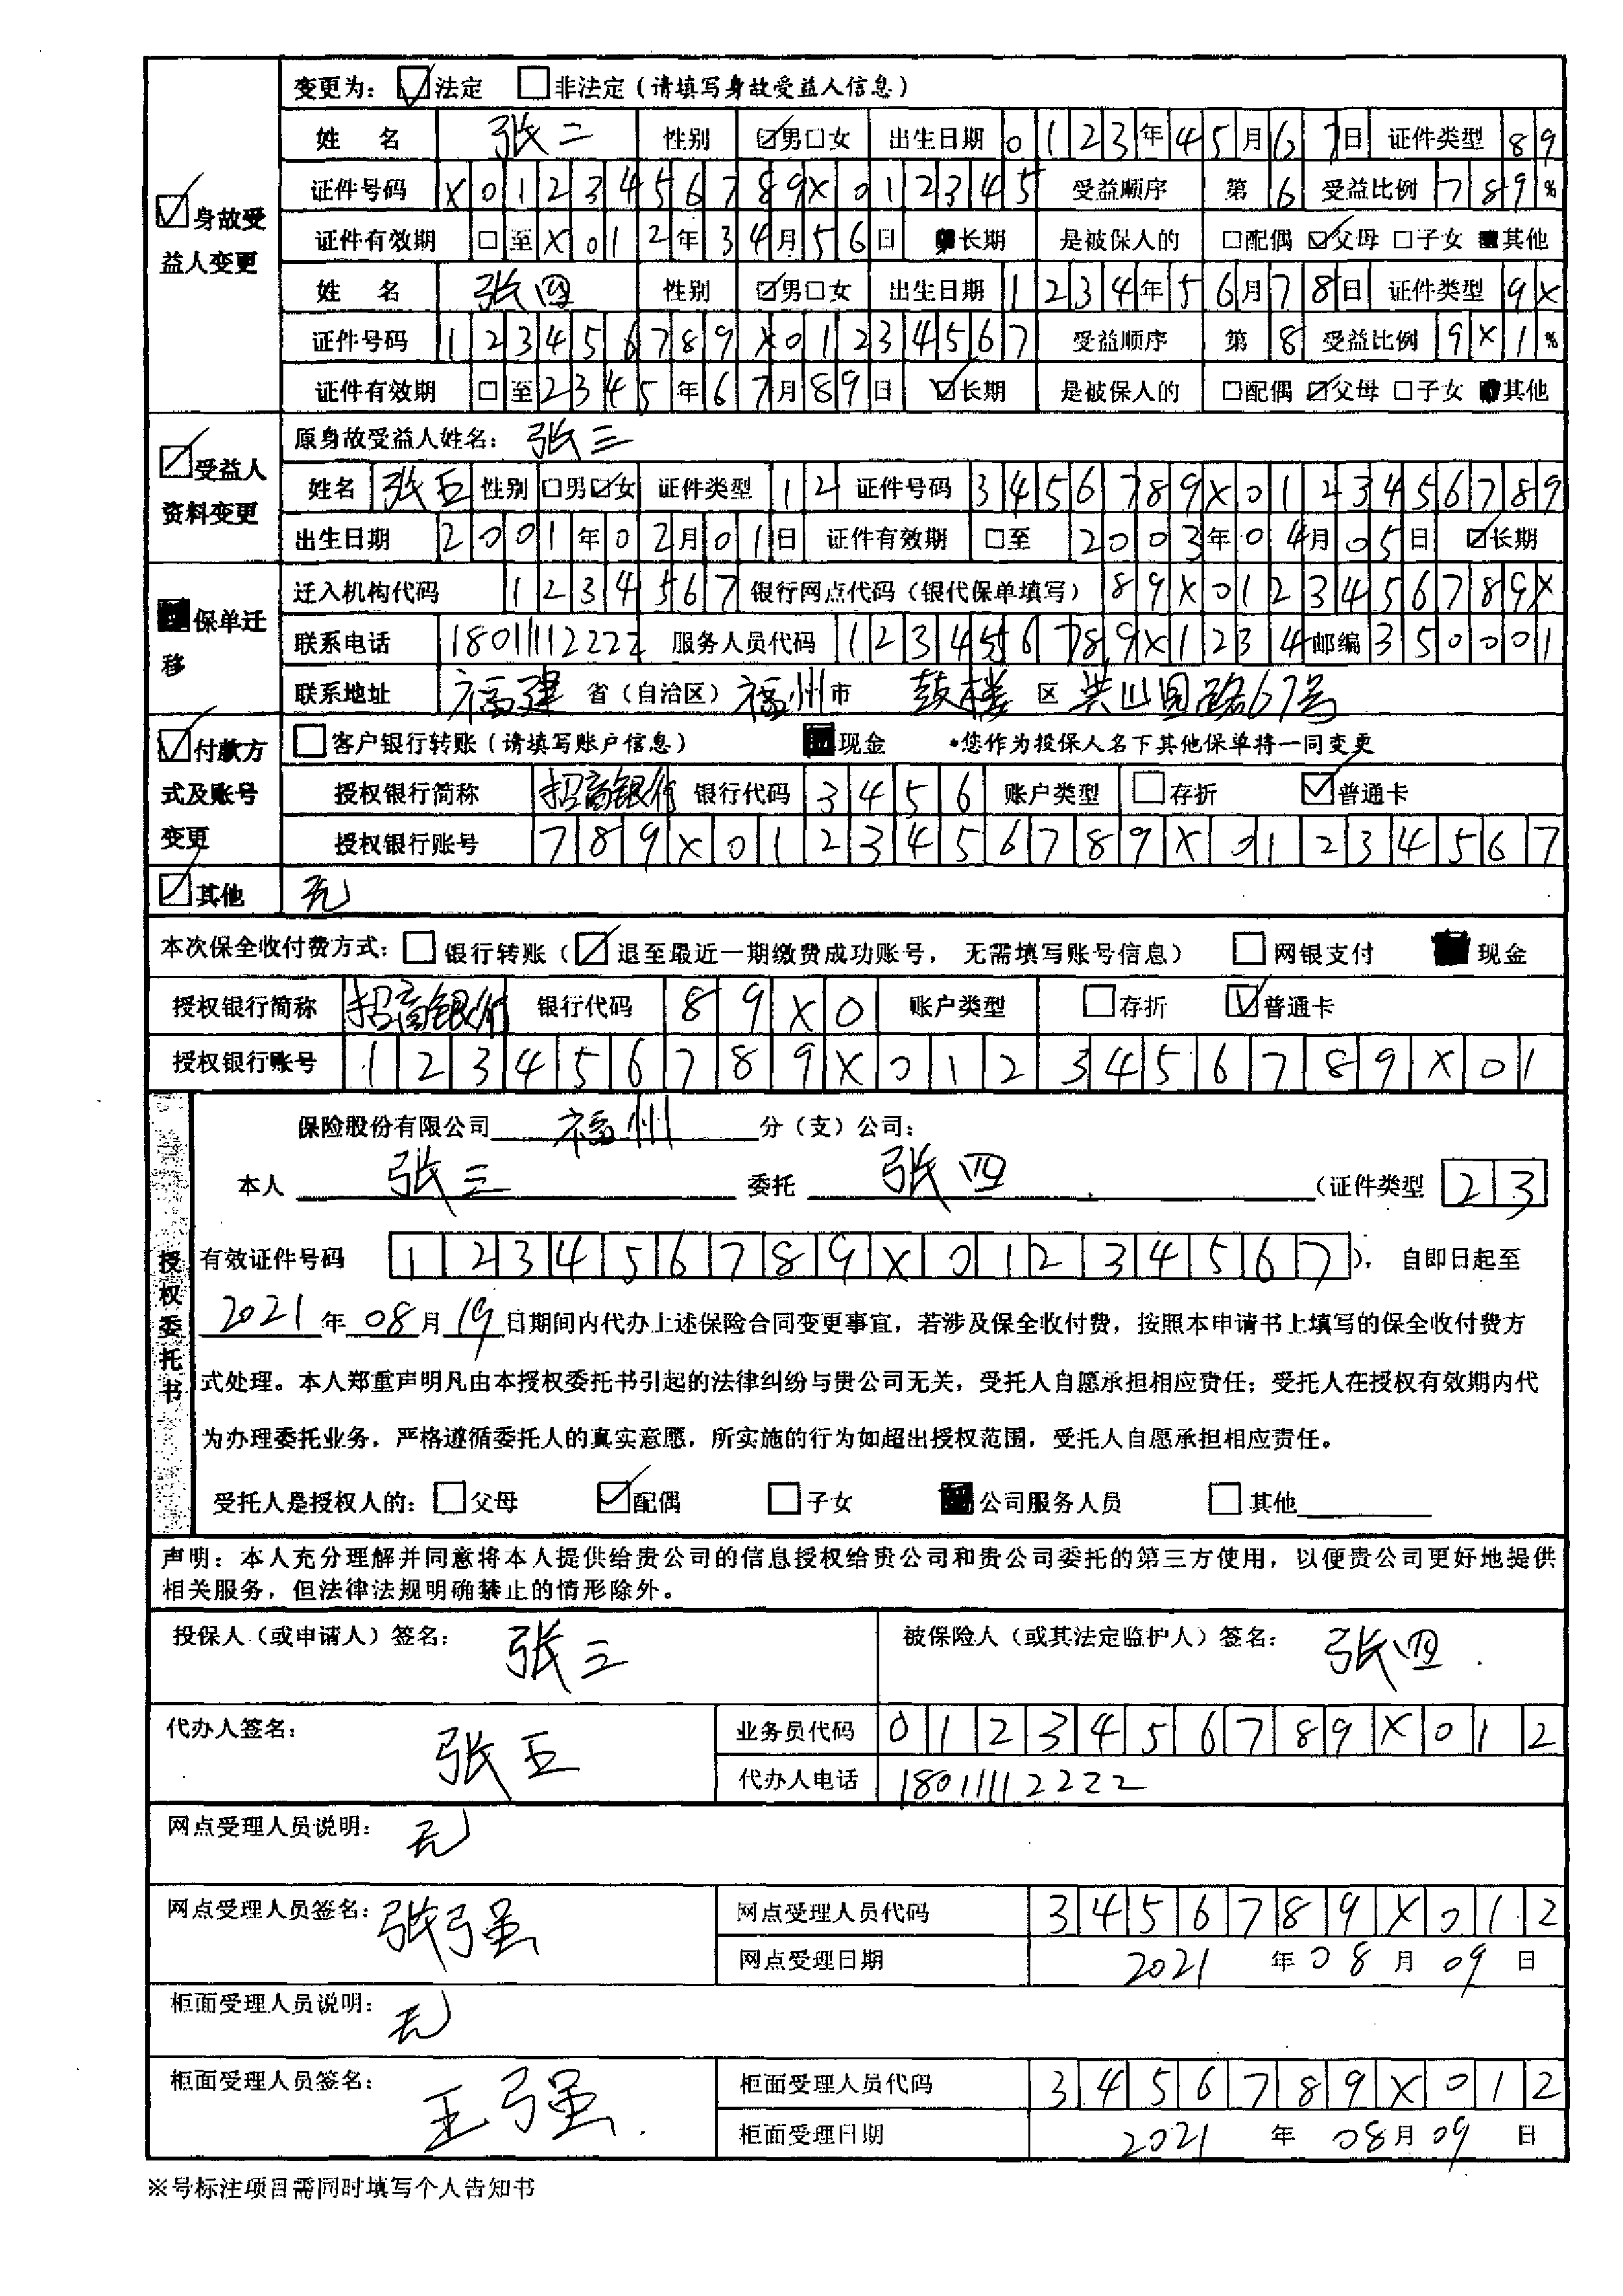 变更为： ☑法定 □非法定（请填写身故受益人信息）
☑身故受益人变更
姓 名 张二 性别 ☑男□女 出生日期 0123年45月67日 证件类型 89
证件号码 X0123456789X012345 受益顺序 第6 受益比例 789%
证件有效期 □至X012年34月56日 ■长期 是被保人的 □配偶 ☑父母 □子女 ■其他
姓 名 张四 性别 ☑男□女 出生日期 1234年56月78日 证件类型 9X
证件号码 123456789X01234567 受益顺序 第8 受益比例 9X1%
证件有效期 □至2345年67月89日 ☑长期 是被保人的 □配偶 ☑父母 □子女 ■其他
☑受益人资料变更
原身故受益人姓名： 张三
姓名 张五 性别 □男☑女 证件类型 12 证件号码 3456789X0123456789
出生日期 2001年02月01日 证件有效期 □至 2003年04月05日 ☑长期
■保单迁移
迁入机构代码 1234567 银行网点代码（银代保单填写） 89X0123456789X
联系电话 18011112222 服务人员代码 123456789X1234 邮编 350001
联系地址 福建 省（自治区） 福州 市 鼓楼 区 洪山园路67号
☑付款方式及账号变更
□客户银行转账（请填写账户信息） ■现金 *您作为投保人名下其他保单将一同变更
授权银行简称 招商银行 银行代码 3456 账户类型 □存折 ☑普通卡
授权银行账号 789X0123456789X01234567
☑其他 无
本次保全收付费方式： □银行转账（☑退至最近一期缴费成功账号，无需填写账号信息） □网银支付 ■现金
授权银行简称 招商银行 银行代码 89X0 账户类型 □存折 ☑普通卡
授权银行账号 123456789X0123456789X01
授权委托书
保险股份有限公司 福州 分（支）公司：
本人 张三 委托 张四 （证件类型 23
有效证件号码 123456789X01234567 ）， 自即日起至
2021 年 08 月 19 日期间内代办上述保险合同变更事宜，若涉及保全收付费，按照本申请书上填写的保全收付费方
式处理。本人郑重声明凡由本授权委托书引起的法律纠纷与贵公司无关，受托人自愿承担相应责任；受托人在授权有效期内代
为办理委托业务，严格遵循委托人的真实意愿，所实施的行为如超出授权范围，受托人自愿承担相应责任。
受托人是授权人的： □父母 ☑配偶 □子女 ■公司服务人员 □其他
声明：本人充分理解并同意将本人提供给贵公司的信息授权给贵公司和贵公司委托的第三方使用，以便贵公司更好地提供
相关服务，但法律法规明确禁止的情形除外。
投保人（或申请人）签名： 张三 被保险人（或其法定监护人）签名： 张四
代办人签名： 张五 业务员代码 0123456789X012
代办人电话 18011112222
网点受理人员说明： 无
网点受理人员签名： 张弓强 网点受理人员代码 3456789X012
网点受理日期 2021 年 08 月 09 日
柜面受理人员说明： 无
柜面受理人员签名： 王弓强 柜面受理人员代码 3456789X012
柜面受理日期 2021 年 08 月 09 日
※号标注项目需同时填写个人告知书